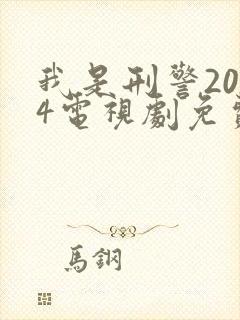 我是刑警20
4電視劇免費
馬鋼